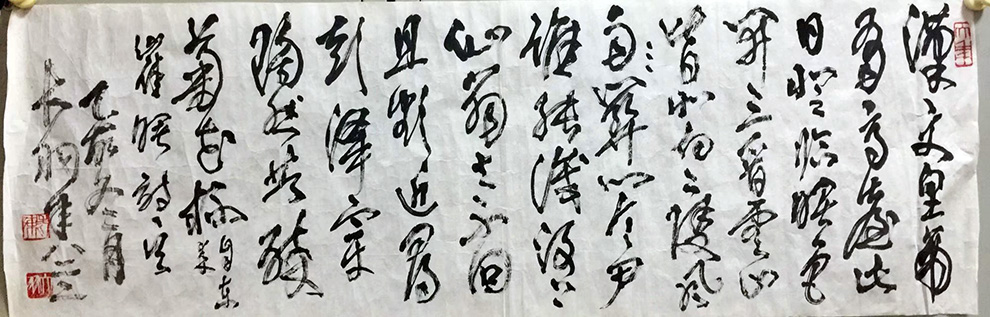 漢文皇帝
有高臺此
日登临曙色
開三晋雲山
皆北向二陵风
雨關門令尹
誰能識河上
仙翁去不回
且欲近尋
彭澤宰
陶然共醉
菊花杯
自東来
崔曙詩一
乙亥冬月
年八三